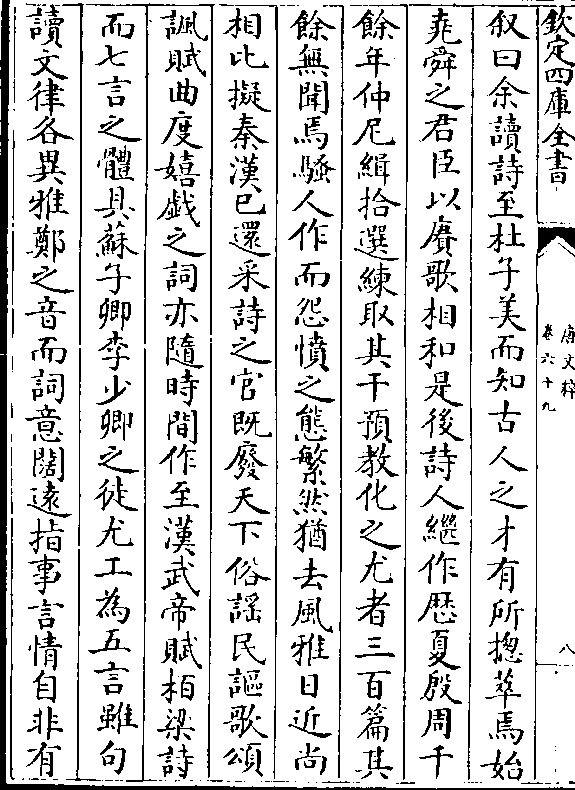 欽定四庫全書
唐文粹
卷六十九
八
叙曰余讀詩至杜子美而知古人之才有所揔萃焉始
堯舜之君臣以賡歌相和是後詩人繼作歴夏殷周千
餘年仲尼緝拾選練取其干預教化之尤者三百篇其
餘無聞焉騷人作而怨憤之態繁然猶去風雅日近尚
相比擬秦漢已還采詩之官既廢天下俗謡民謳歌頌
諷賦曲度嬉戱之詞亦隨時間作至漢武帝賦柏梁詩
而七言之體具蘇子卿李少卿之徒尤工為五言雖句
讀文律各異雅鄭之音而詞意闊逺指事言情自非有